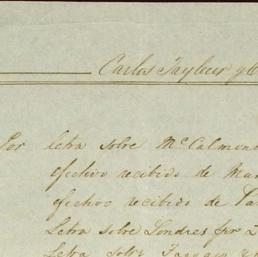 Carlos Tayleur y
Por letra sobre McCalmon
efectivo recibido de Ma
efectivo recibido de
Letra sobre Londres por
Letra sobre